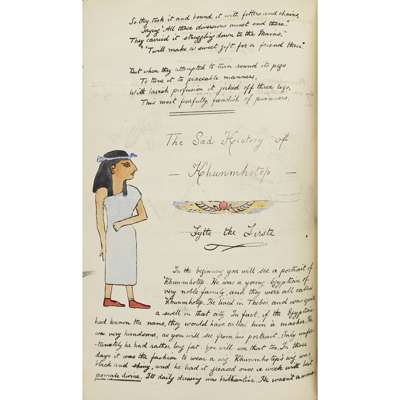 So they took it and bound it with fetters and chains,
Saying "All these diversions must end there."
They carried it struggling down to the
"'Twill make a sweet gift for a friend there."
But when they attempted to turn round its pegs
To tune it to peaceable manners,
With lavish profusion it jerked off three legs,
This most fearful of pianners.
The Sad History of
— Khunmhotep —
Fytte the Firste
In the beginning you will see a portrait of
Khunmhotep. He was a young Egyptian of
very noble family, and they were all called
Khunmhotep. He lived in Thebes and was quite
a swell in that city. In fact, if the Egyptians
had known the name, they would have called him a masher. He
was very handsome, as you will see from his portrait. Only unfor-
-tunately he had rather big feet. you will see that too. In those
days it was the fashion to wear a wig. Khunmhotep's wig was
black and shiny, and he had it greased once a week with best
pomade divine. His daily dressing was He wasn't a